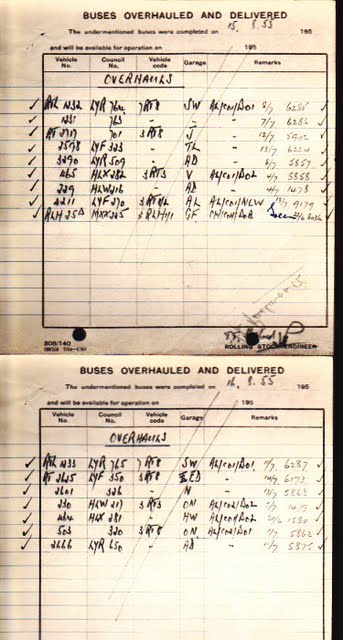 BUSES OVERHAULED AND DELIVERED
The undermentioned buses were completed on 15. 8. 55 195
and will be available for operation on 195
Vehicle No. Council No. Vehicle code Garage Remarks
OVERHAULS
✓ RTL 1232 LYR 764 7RT8 SW AL/COI/DO1 ✓
✓ 1231 763 - - - 7/7 6286 ✓
✓ RT 2717 701 3RT8 J - 12/7 5902 ✓
✓ 2598 LYF 323 - TL - 13/7 ✓
✓ 3290 LYR 509 - AD - 5857 ✓
✓ 465 HLX 282 3RT3 V AL/COI/DO2 5858 ✓
✓ 229 HLW 216 - AD - 1478 ✓
✓ 2211 LYF 270 AL AL/COI/NEW 9179 ✓
✓ RLH 25 MXX 225 GF ✓
ROLLING STOCK ENGINEER
808/140
BUSES OVERHAULED AND DELIVERED
The undermentioned buses were completed on 16. 8. 55 195
and will be available for operation on 195
Vehicle No. Council No. Vehicle code Garage Remarks
OVERHAULS
✓ RTL 1233 LYR 765 7RT8 SW AL/COI/DO1 6287 ✓
✓ RT 2625 LYF 350 3RT8 ED - 6173 ✓
✓ 2601 326 - N - 5863 ✓
✓ 230 HLW 217 3RT3 ON AL/COI/DO2 ✓
✓ 464 HLX 281 - HW AL/COI/DO2 1580 ✓
✓ 503 320 3RT8 ON AL/COI/DO1 5862 ✓
✓ 2666 LYR 650 - AD - 5875 ✓